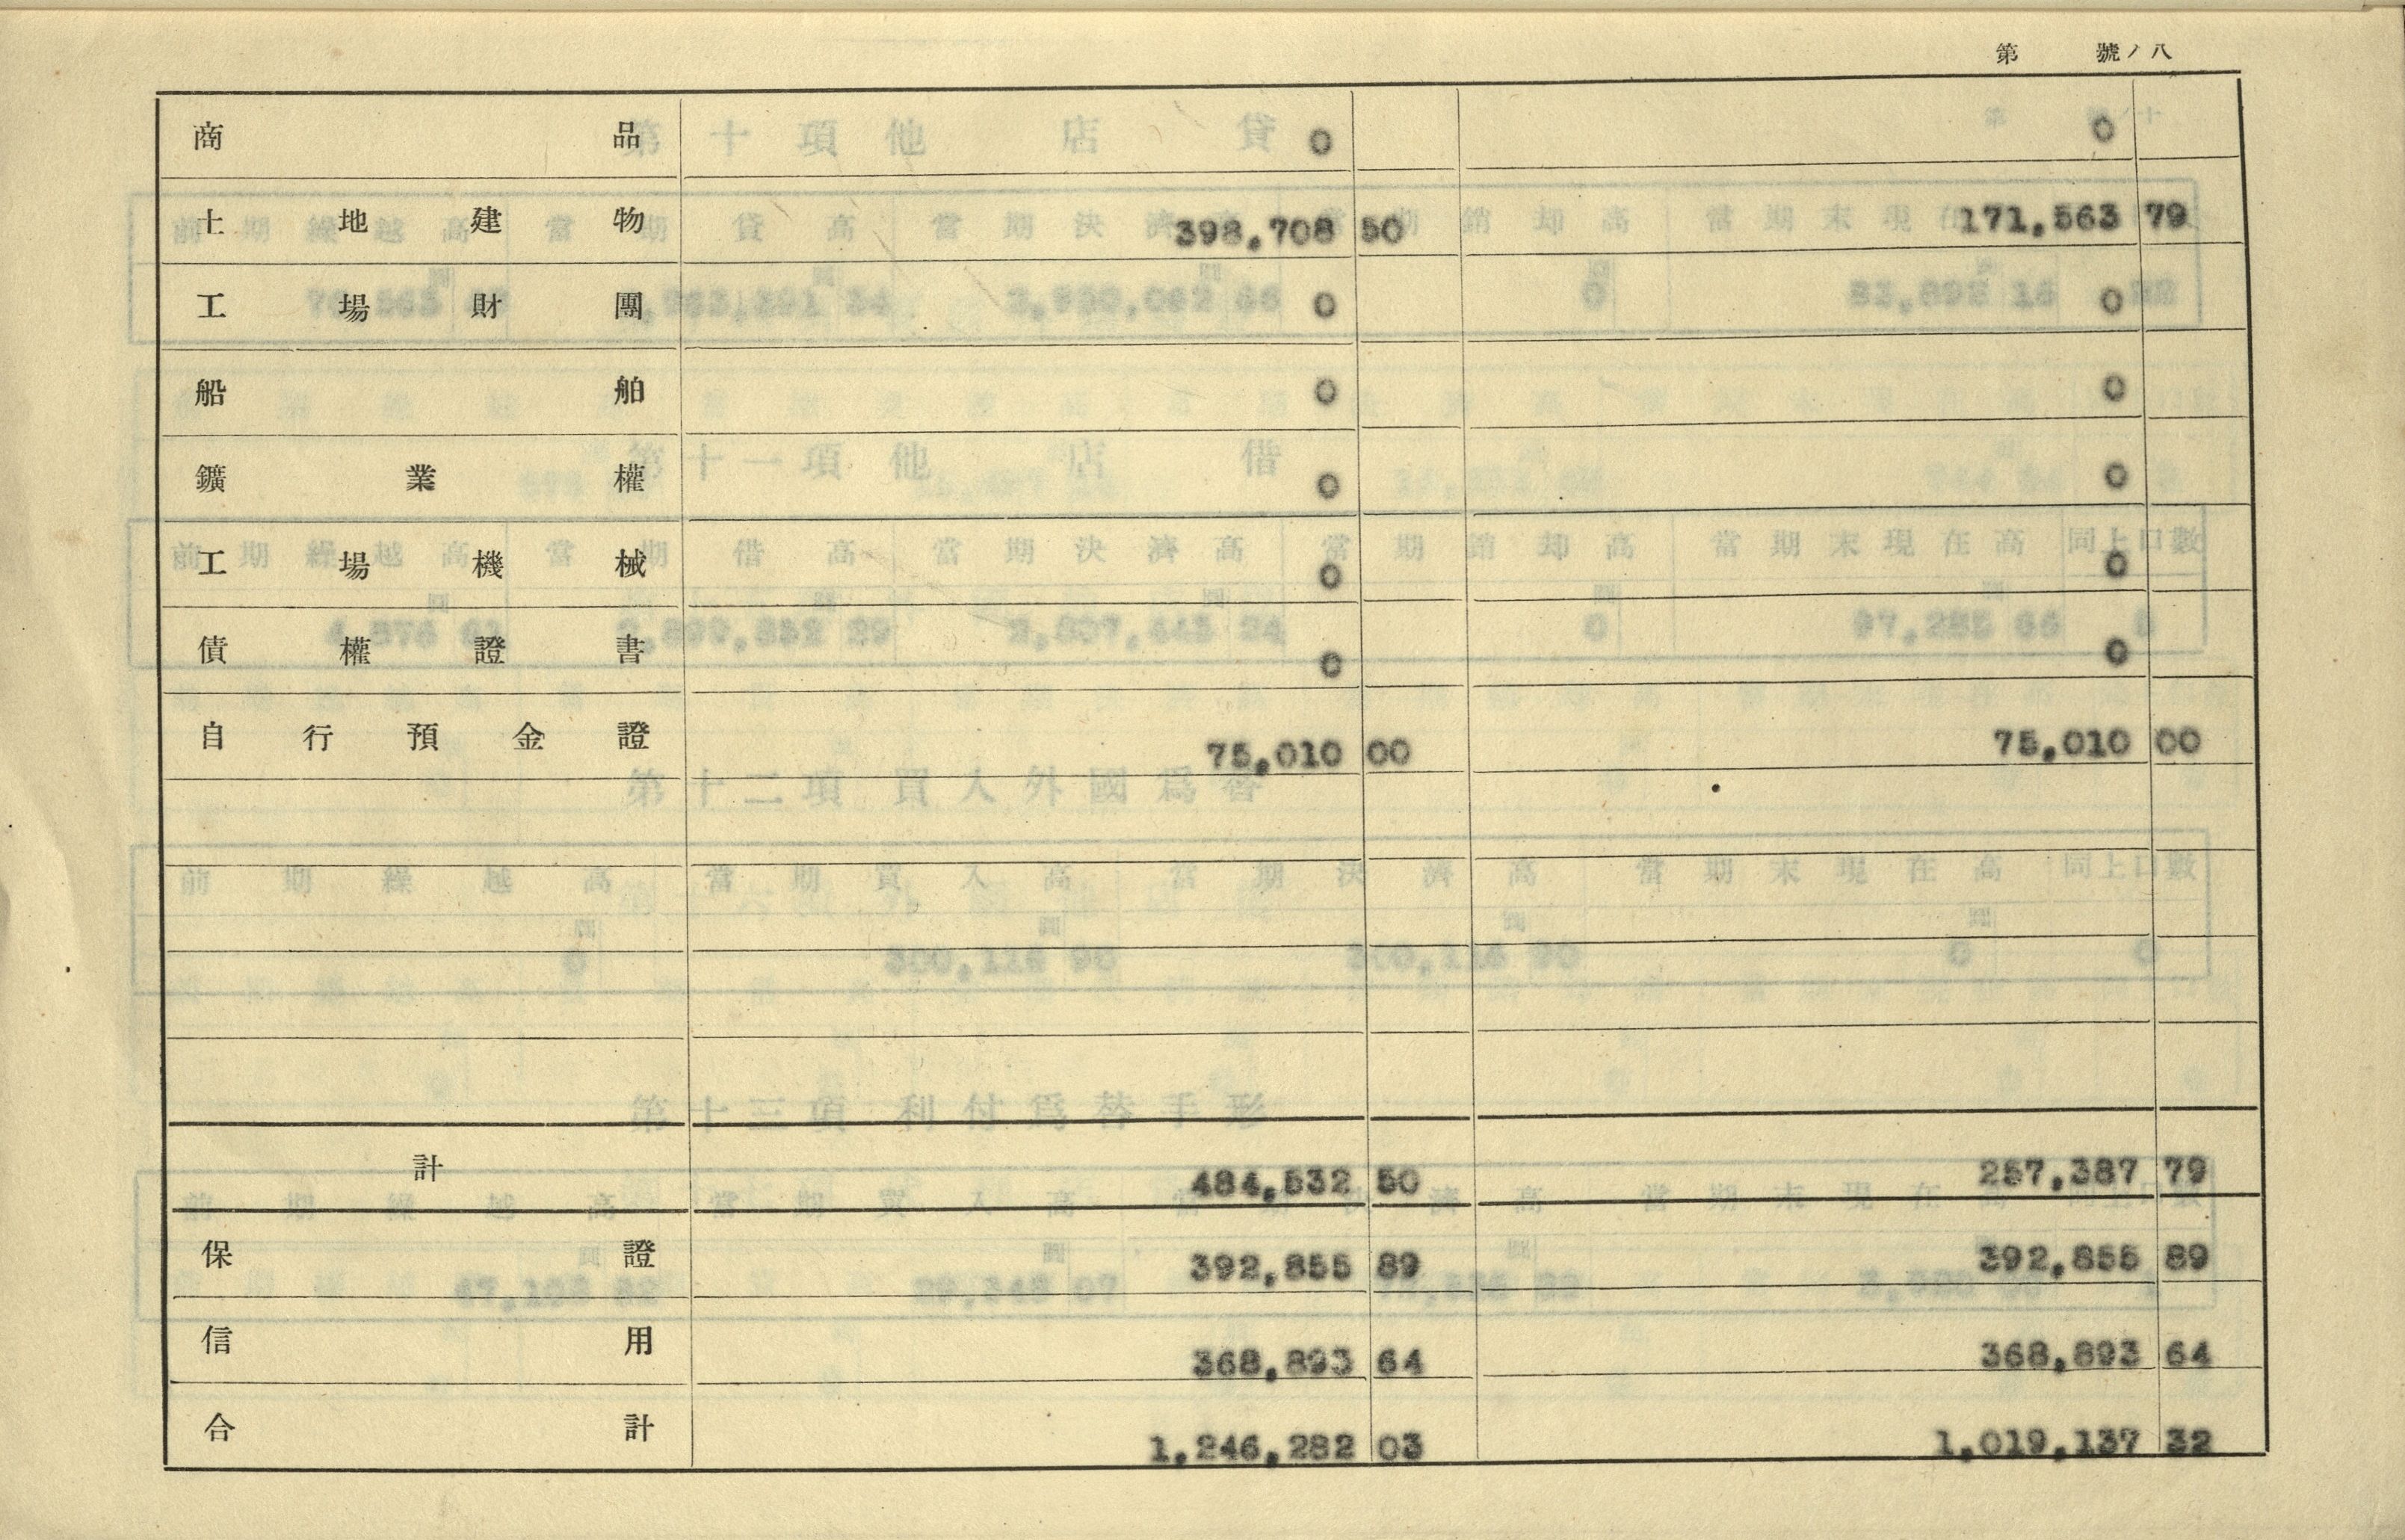 第 號ノ八
商品 0 0
土地建物 398,708 50 171,563 79
工場財團 0 0
船舶 0 0
鑛業權 0 0
工場機械 0 0
債權證書 0 0
自行預金證 75,010 00 75,010 00
計 484,532 50 257,387 79
保證 392,855 89 392,855 89
信用 368,893 64 368,893 64
合計 1,246,282 03 1,019,137 32